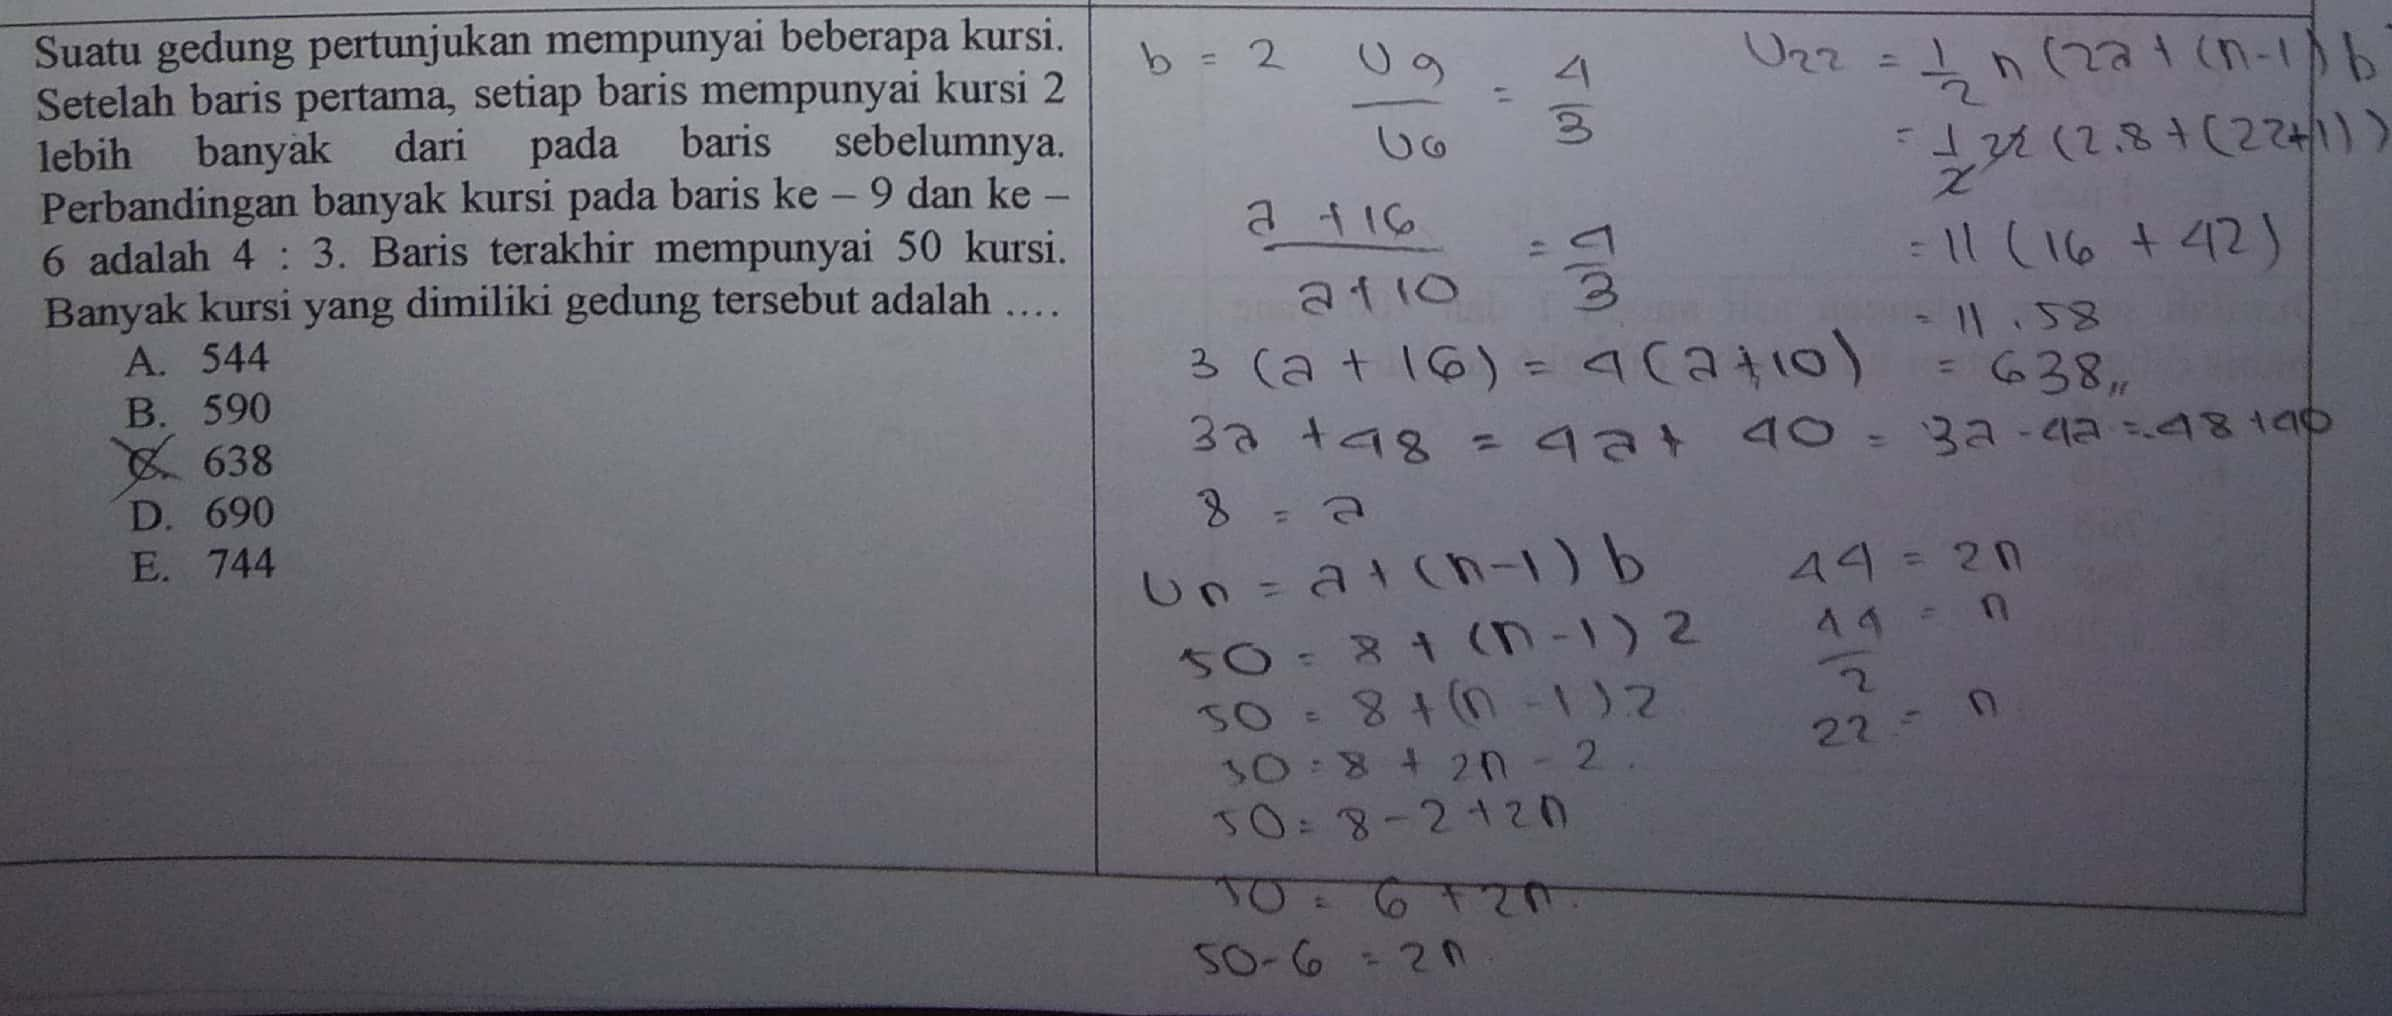 Suatu gedung pertunjukan mempunyai beberapa kursi.
Setelah baris pertama, setiap baris mempunyai kursi 2
lebih banyak dari pada baris sebelumnya.
Perbandingan banyak kursi pada baris ke – 9 dan ke –
6 adalah 4 : 3. Baris terakhir mempunyai 50 kursi.
Banyak kursi yang dimiliki gedung tersebut adalah ....
A. 544
B. 590
C. 638
D. 690
E. 744
b = 2
U9 / U6 = 4/3
a + 16 / a + 10 = 4/3
3 (a + 16) = 4 (a + 10)
3a + 48 = 4a + 40 = 3a - 4a = -48 + 40
8 = a
Un = a + (n-1) b
50 = 8 + (n-1) 2
50 = 8 + (n-1) 2
50 = 8 + 2n - 2
50 = 8 - 2 + 2n
50 = 6 + 2n
50-6 = 2n
44 = 2n
44/2 = n
22 = n
U22 = 1/2 n (2a + (n-1) b
= 1/2 22 (2.8 + (22+1))
= 11 (16 + 42)
= 11 . 58
= 638,,